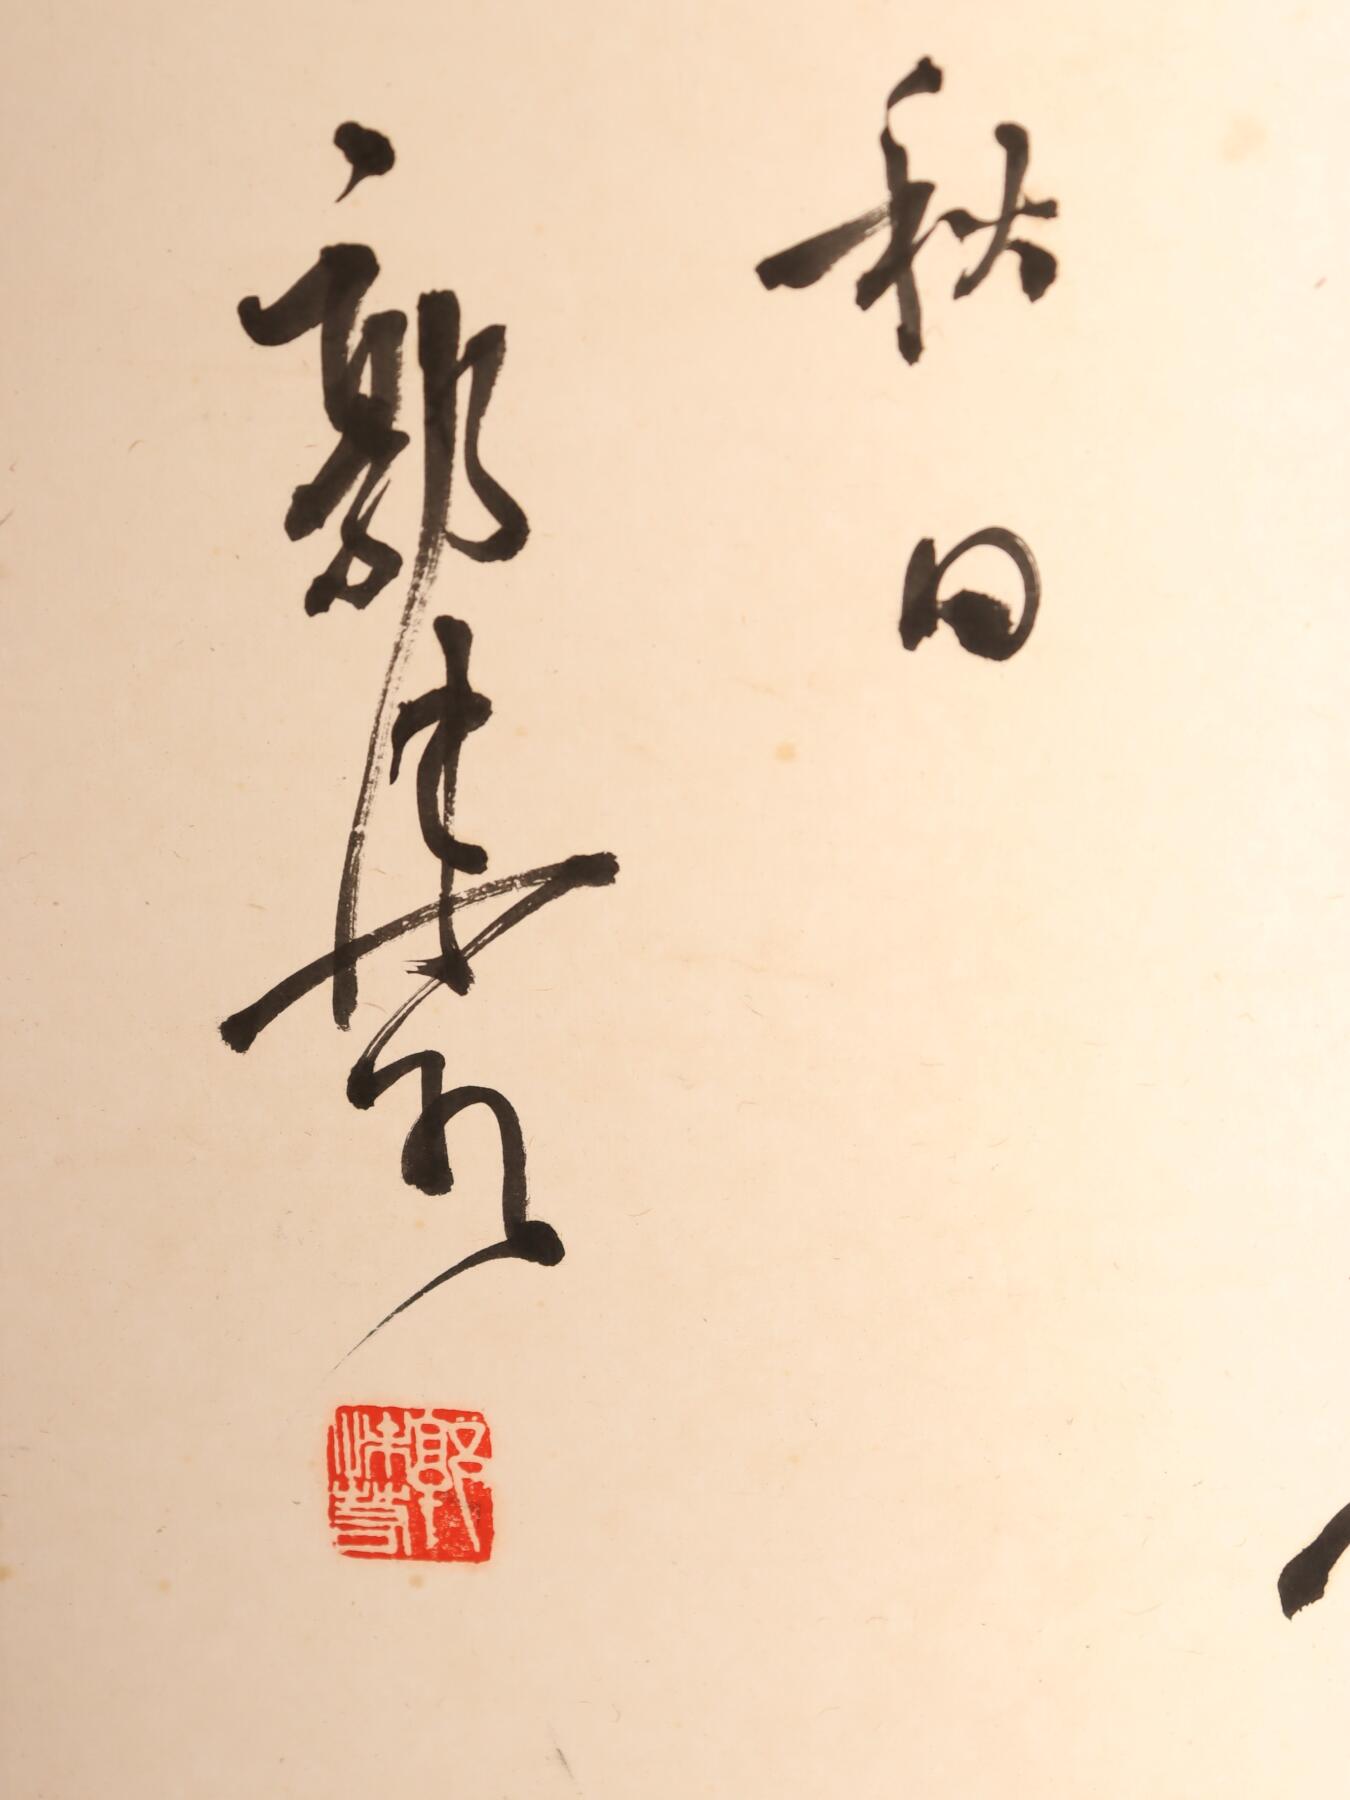 秋日
郭沫若
郭沫若